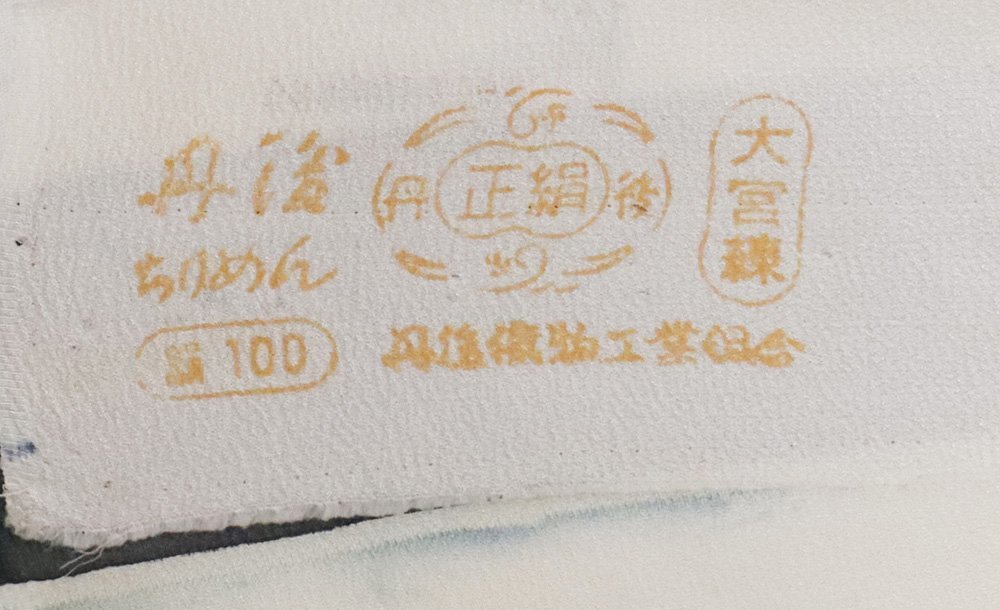 丹後
ちりめん
絹 100
丹 正絹 後
大宮練
丹後織物工業組合